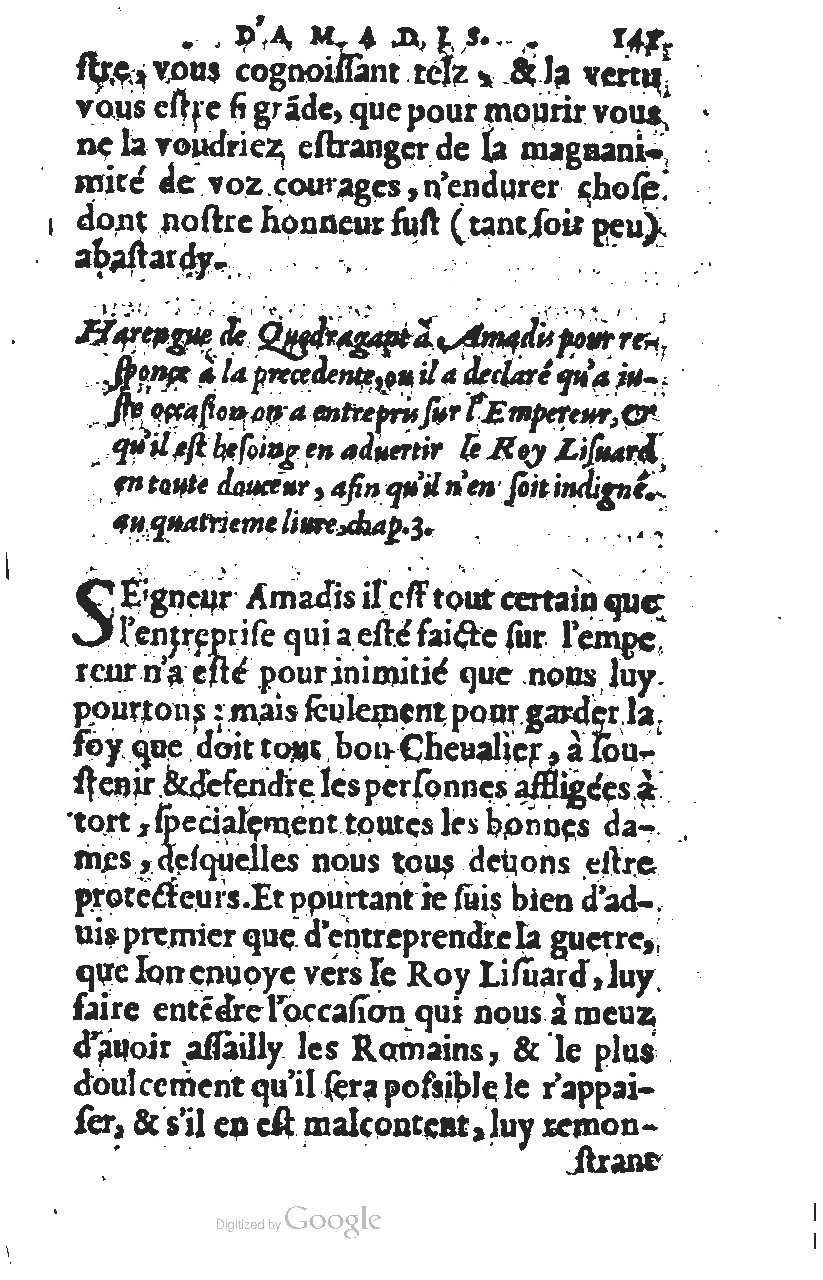 D'AMADIS. 141.
ſtre, vous cognoiſſant telz, & la vertu
vous eſtre ſi grãde, que pour mourir vous
ne la voudriez eſtranger de la magnani-
mité de voz courages, n'endurer choſe
dont noſtre honneur fuſt (tant ſoit peu)
abaſtardy.
Harengue de Quedragant à Amadis pour re-
ſponce à la precedente, ou il a declaré qu'a iu-
ſte occaſion on a entrepris ſur l'Empereur, &
qu'il eſt beſoing en aduertir le Roy Liſuard
en toute douceur, afin qu'il n'en ſoit indigné.
au quatrieme liure, chap.3.
SEigneur Amadis il eſt tout certain que
l'entrepriſe qui a eſté faicte ſur l'empe
reur n'a eſté pour inimitié que nous luy
pourtons : mais ſeulement pour garder la
foy que doit tout bon Cheualier, à ſou-
ſtenir & defendre les perſonnes affligées à
tort, ſpecialement toutes les bonnes da-
mes, deſquelles nous tous deuons eſtre
protecteurs. Et pourtant ie ſuis bien d'ad-
uis premier que d'entreprendre la guerre,
que lon enuoye vers le Roy Liſuard, luy
faire entẽdre l'occaſion qui nous à meuz
d'auoir aſſailly les Romains, & le plus
doulcement qu'il ſera poſsible le r'appai-
ſer, & s'il en eſt malcontent, luy remon-
ſtrant
Digitized by Google